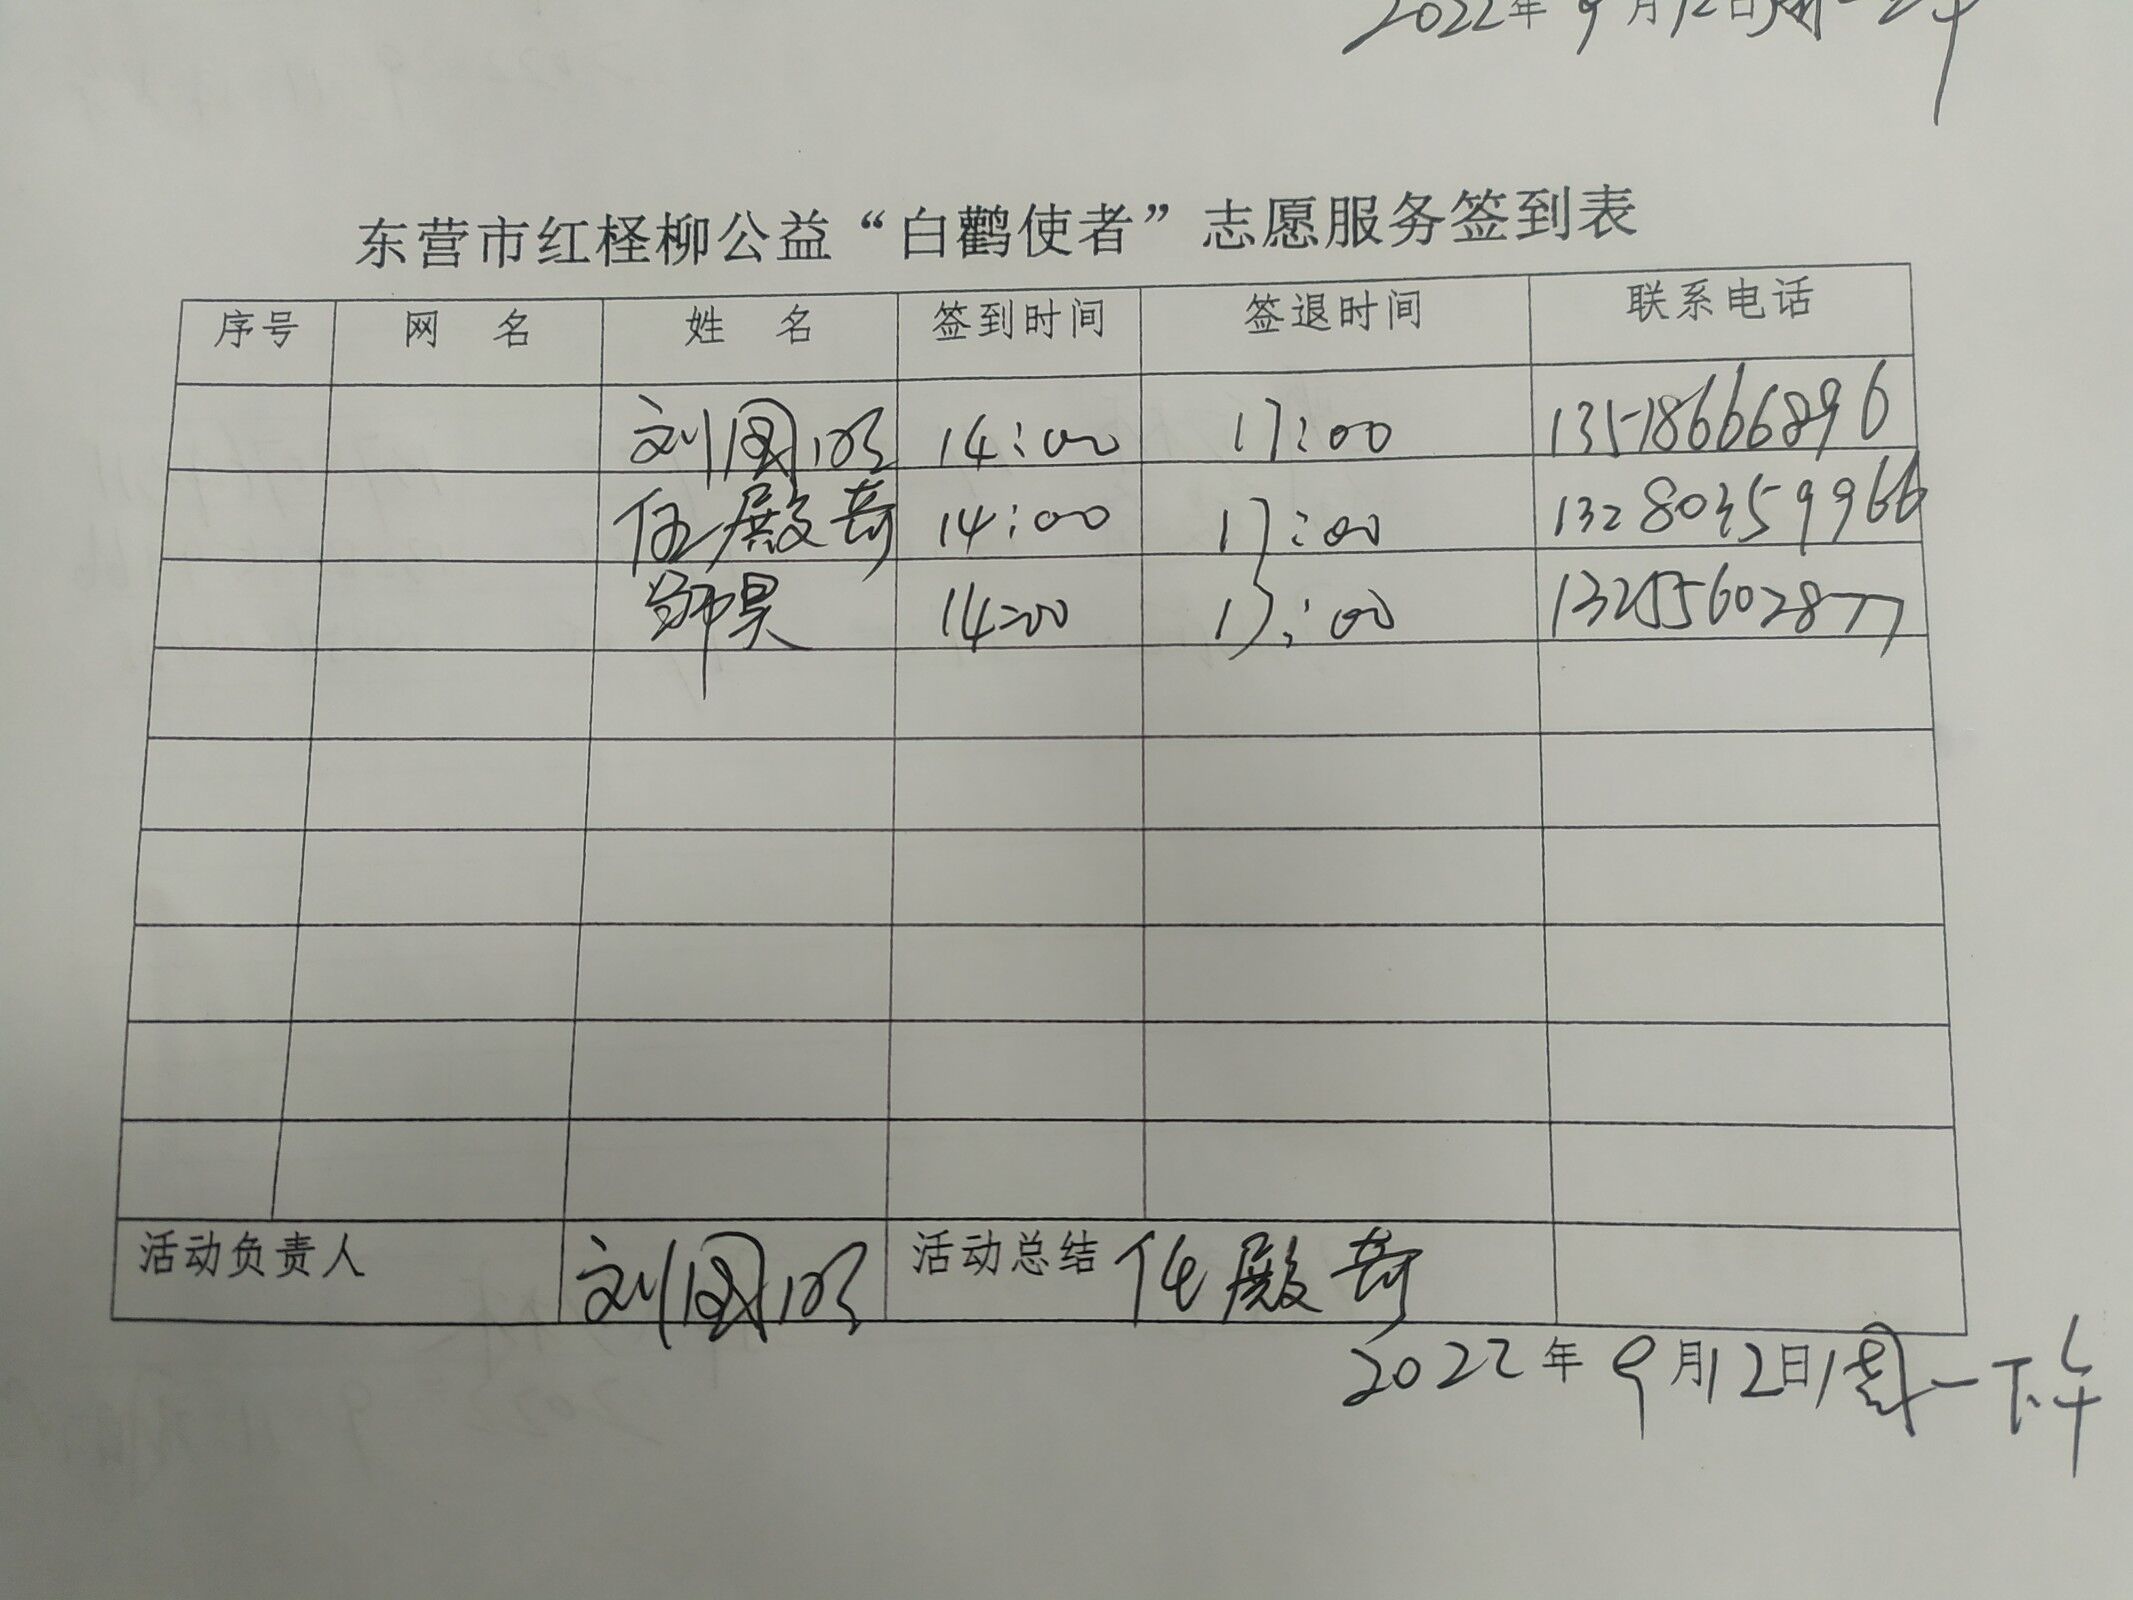 2022年9月12日周一上午
东营市红柽柳公益“白鹳使者”志愿服务签到表
序号 网 名 姓 名 签到时间 签退时间 联系电话
刘国明 14:00 17:00 13518666896
任殿奇 14:00 17:00 13280359966
14:00 17:00 13255602877
活动负责人 刘国明 活动总结 任殿奇
2022年9月12日周一下午